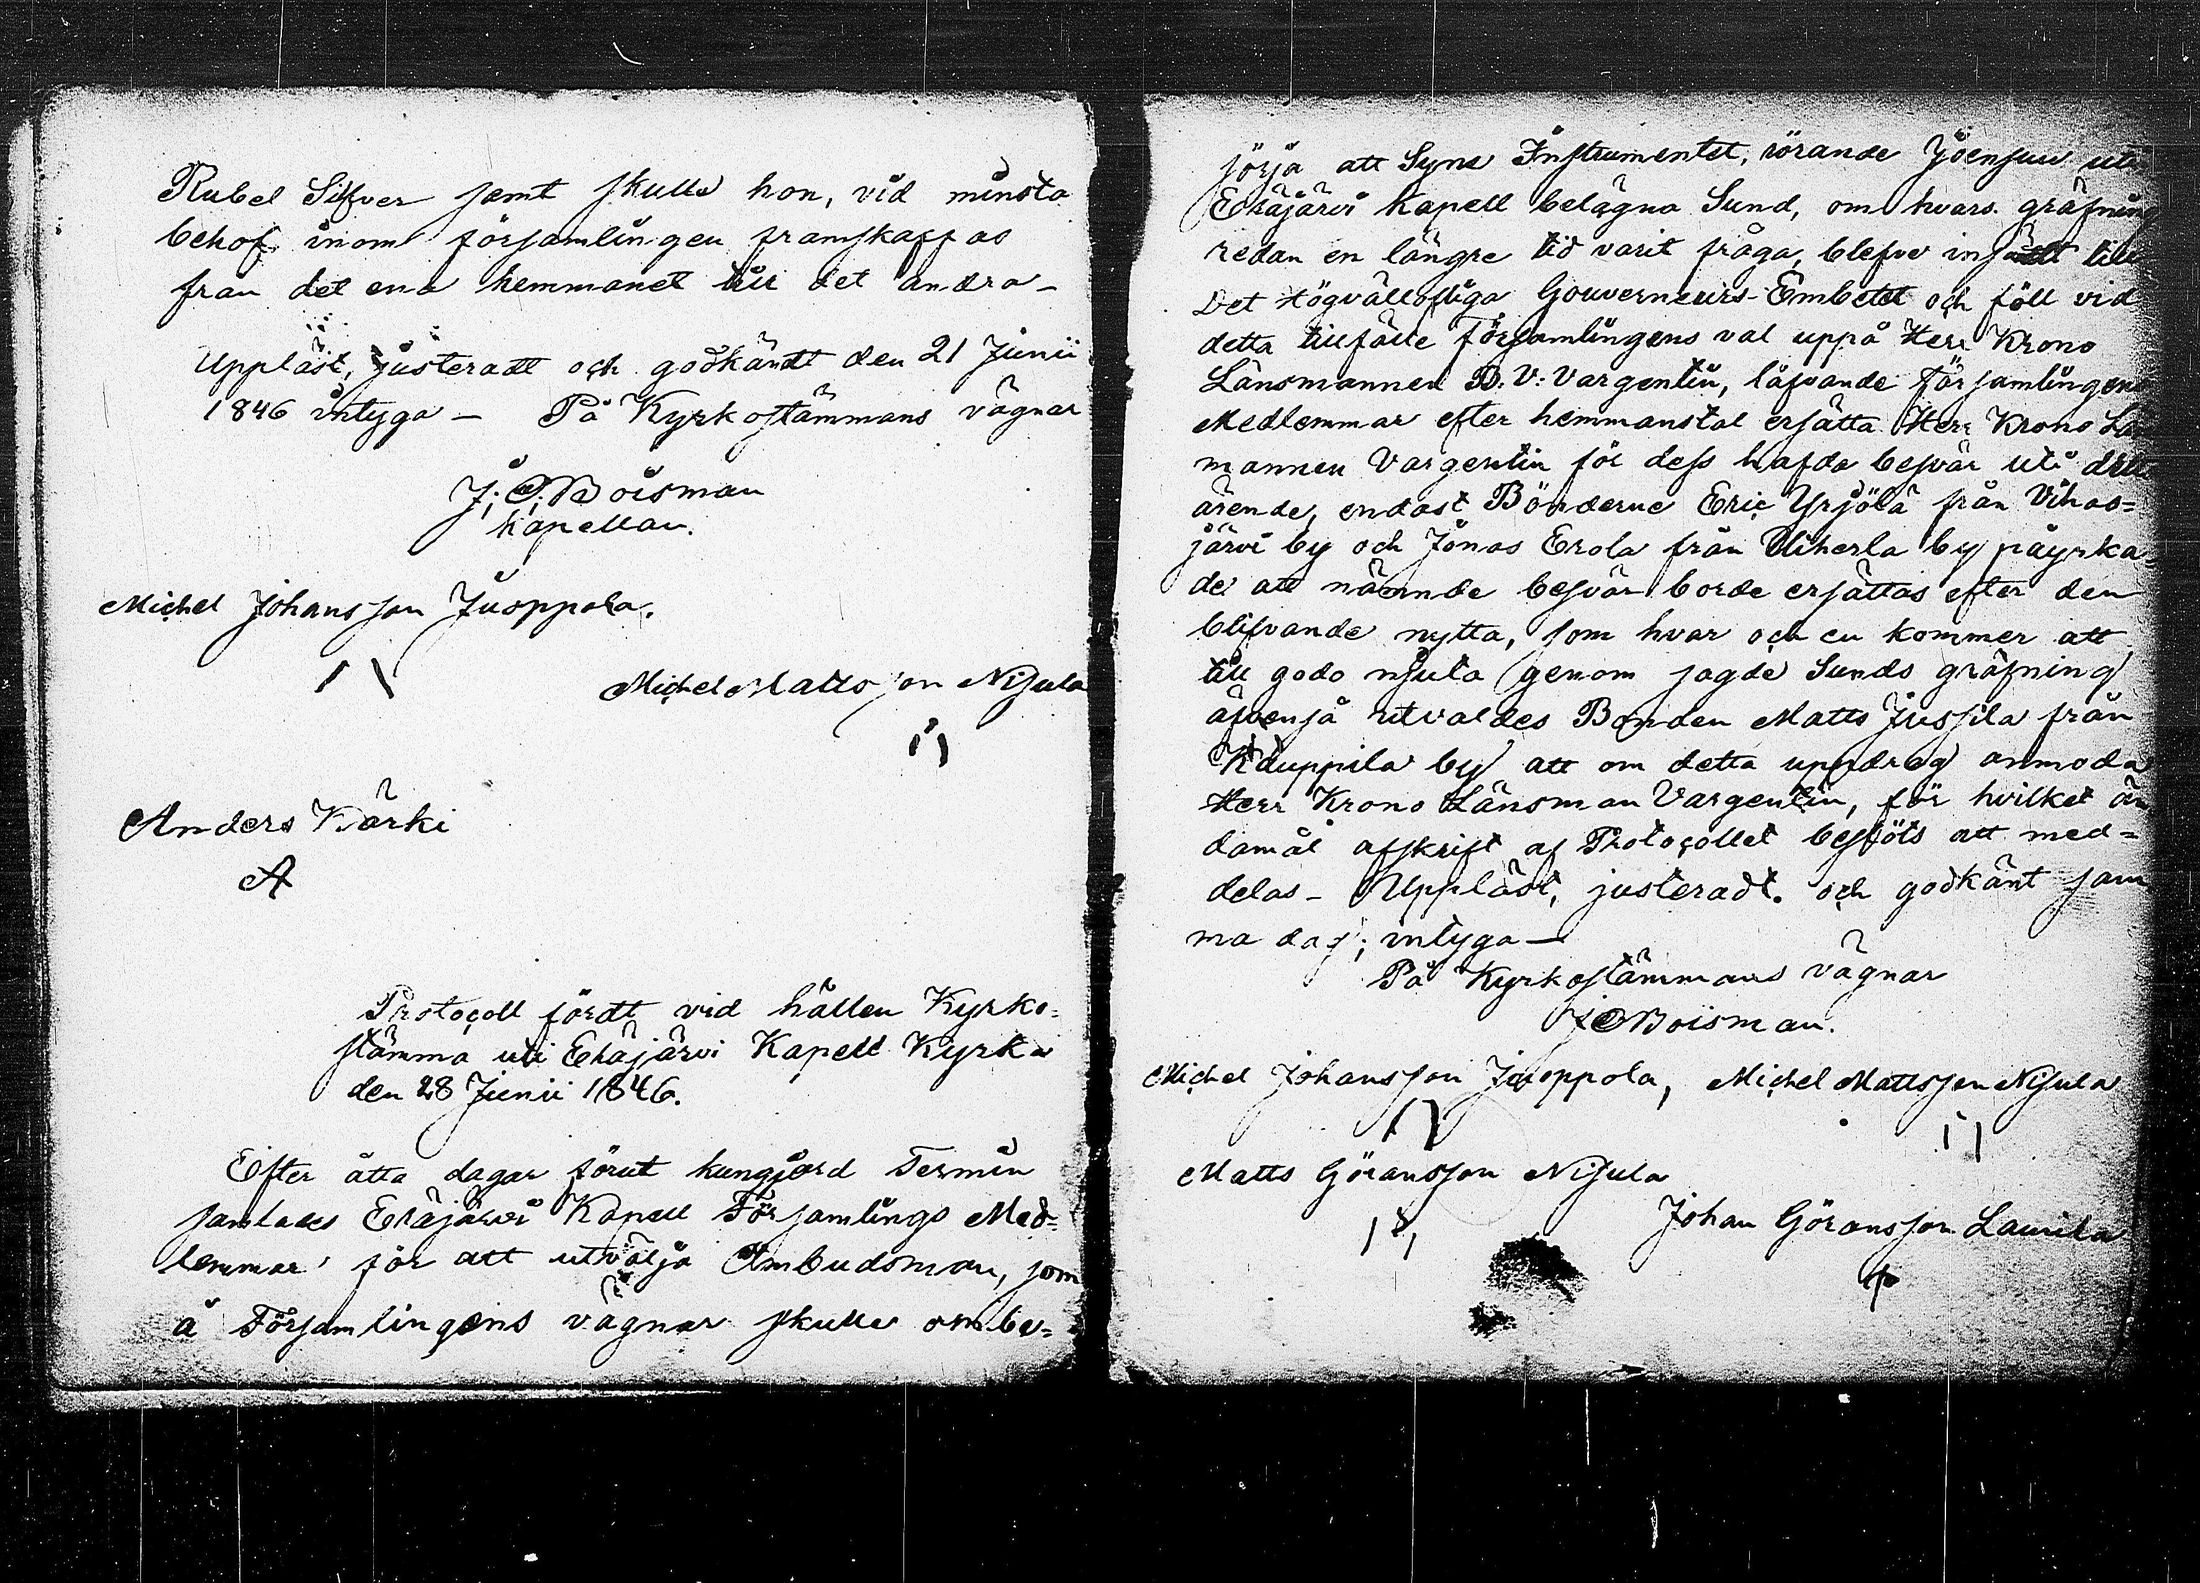 Rubel Silfver samt skulle hon, vid minsta
behof inom församlingen framskaffas
från det ena hemmanet till det andra –
Uppläst, justeradt och godkändt den 21 Junii
1846 intyga – På Kyrkostämmans vägnar
J: C: Boisman
Kapellan.
Michel Johansson Juoppola.
Michel Mattsson Nisula
Anders Kärki
A
Protocoll fördt vid hållen Kyrko=
stämma uti Eräjärvi Kapell Kyrka
den 28 Junii 1846.
Efter åtta dagar förut kungjord Termin
samlades Eräjärvi Kapell Församlings Med=
lemmar för att utvälja Ombudsman, som
å Församlingens vägnar skulle ombe=
sörja att Syne Instrumentet, rörande Joensuu uti
Eräjärvi Kapell belägna Sund, om hvars gräfning
redan en längre tid varit fråga, blefve insändt till
Det Högvällofliga Gouverneurs-Embetet och föll vid
detta tillfälle Församlingens val uppå Herr Krono
Länsmannen B: V: Vargentin, låfvande församlingens
Medlemmar efter hemmanstal ersätta Herr Krono Län
mannen Vargentin för dess hafda besvär uti detta
ärende, endast Bönderne Eric Yrjölä från Vihas=
järvi by och Jonas Erola från Uiherla by påyrka=
de att nämnde besvär borde ersättas efter den
blifvande nytta, som hvar och en kommer att
till godo njuta genom sagde Sunds gräfning
äfvenså utvaldes Bonden Matts Jussila från
Kauppila by att om detta uppdrag anmoda
Herr Krono Länsman Vargentin, för hvilket än
damål afskrift af Protocollet beslöts att med=
delas – Uppläst, justeradt. och godkänt sam
ma dag; intyga –
På Kyrkostämmans vägnar
J C Boisman.
Michel Johansson Juoppola, Michel Mattsson Nisula
Matts Göransson Nisula
Johan Göransson Laurila